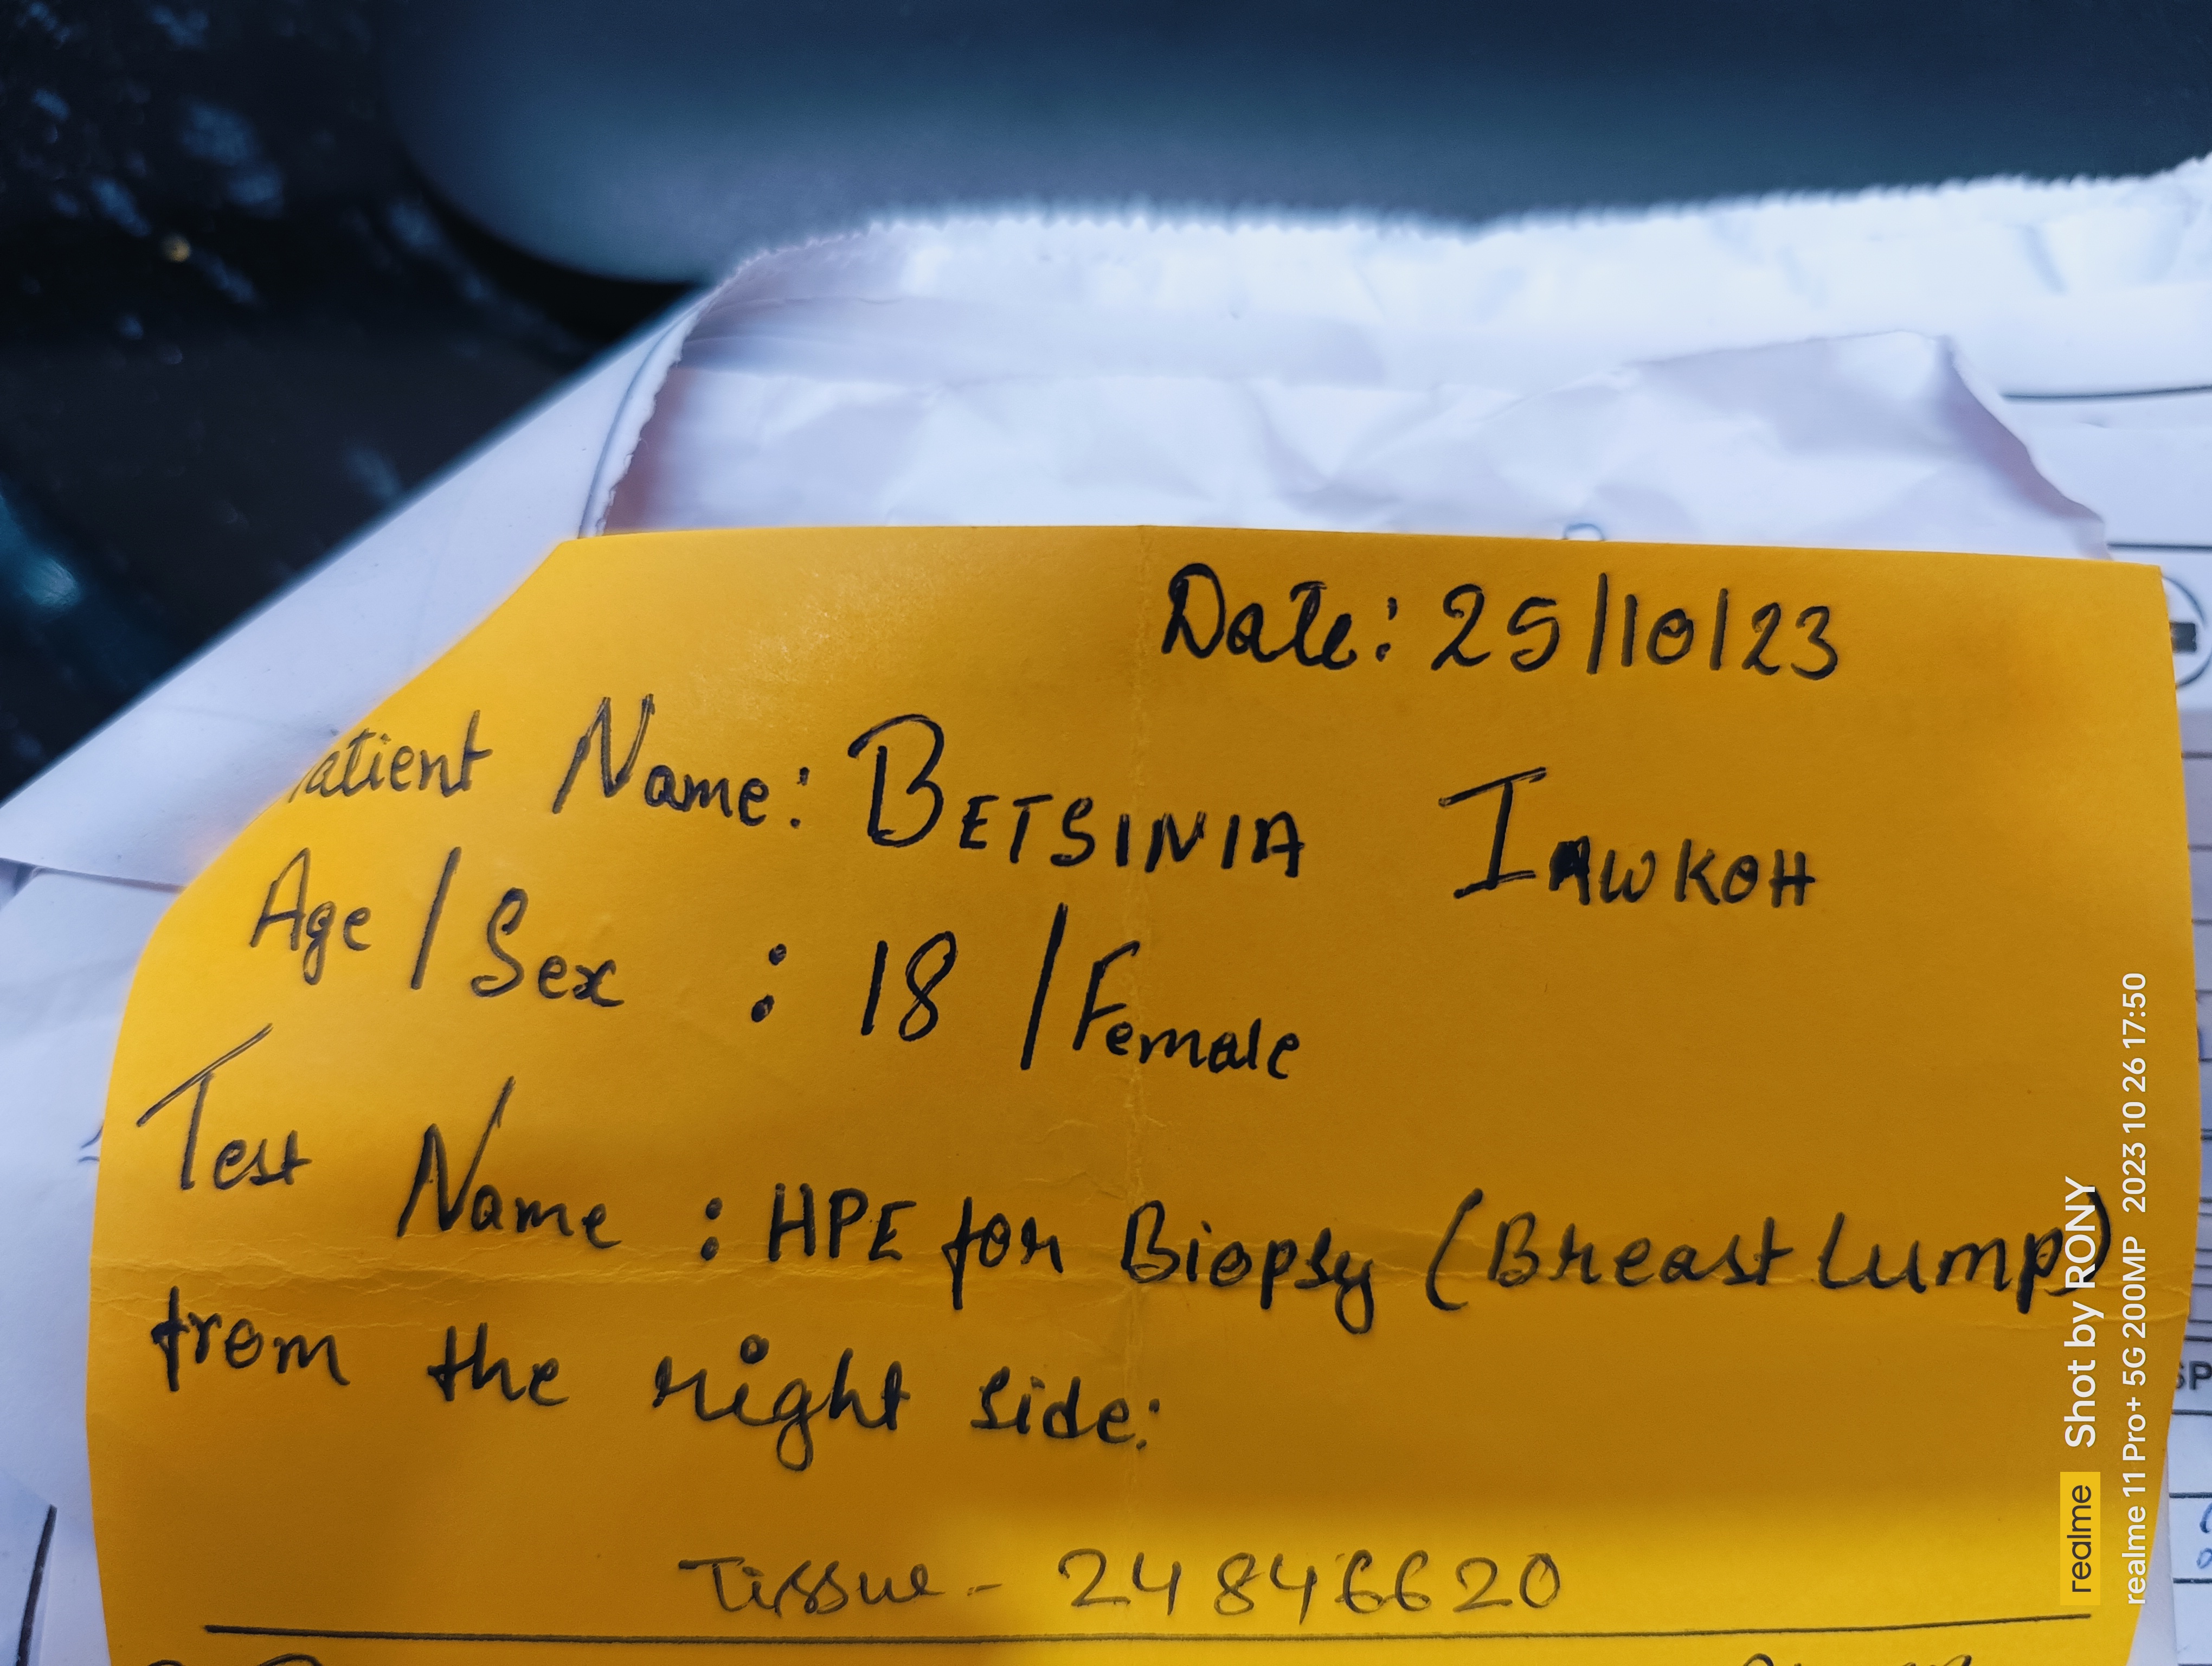 Date: 25/10/23
atient Name: BETSINIA IAWKOH
Age / Sex : 18 / Female
Test Name : HPE for Biopsy (Breast Lump)
from the right side:
Tissue - 24846620
realme Shot by RONY
realme 11 Pro+ 5G 200MP 2023 10 26 17:50